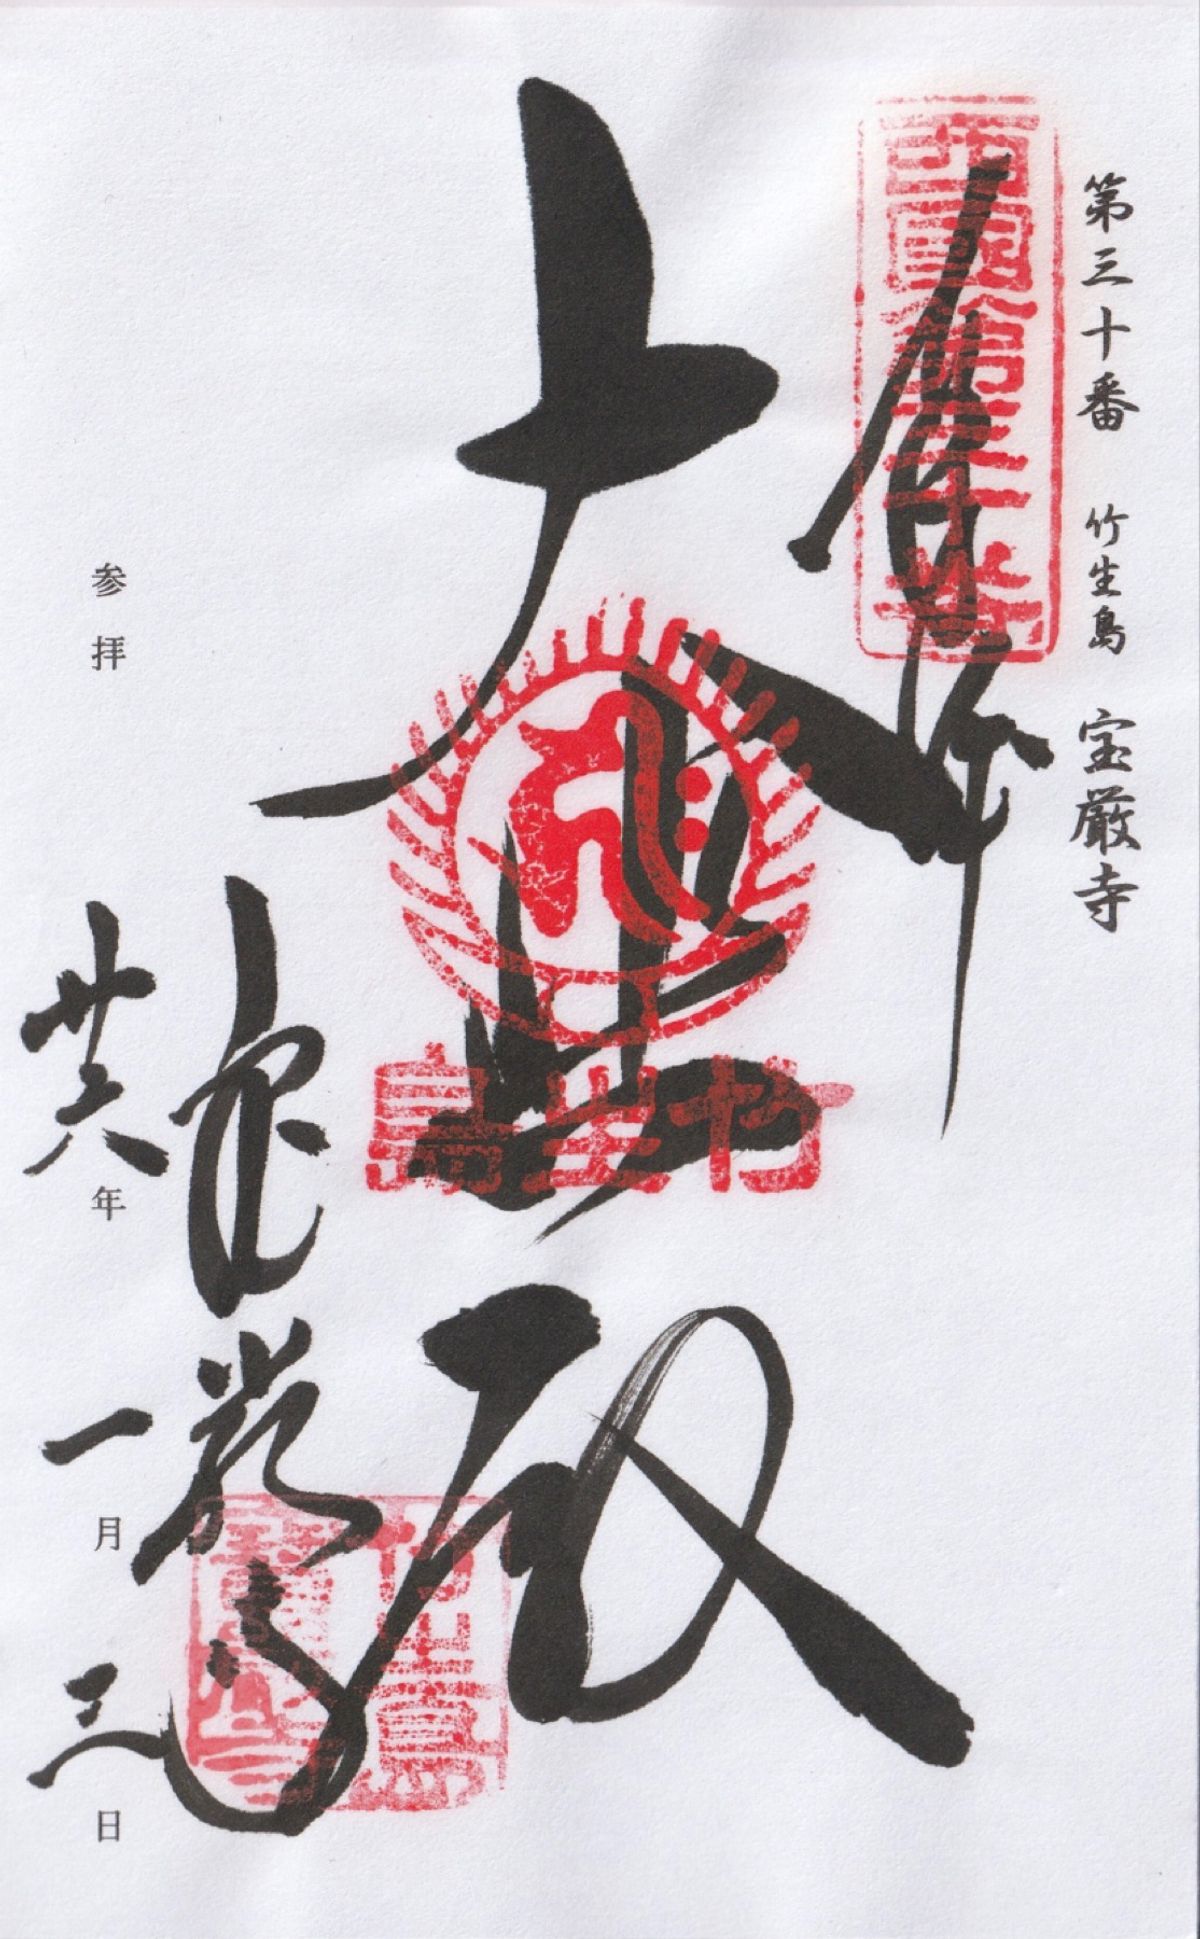 第三十番 竹生島 宝厳寺
西国第三十番
奉拝
大悲殿
竹生島
竹生島
宝厳寺
参拝 廿六年 一月 三日